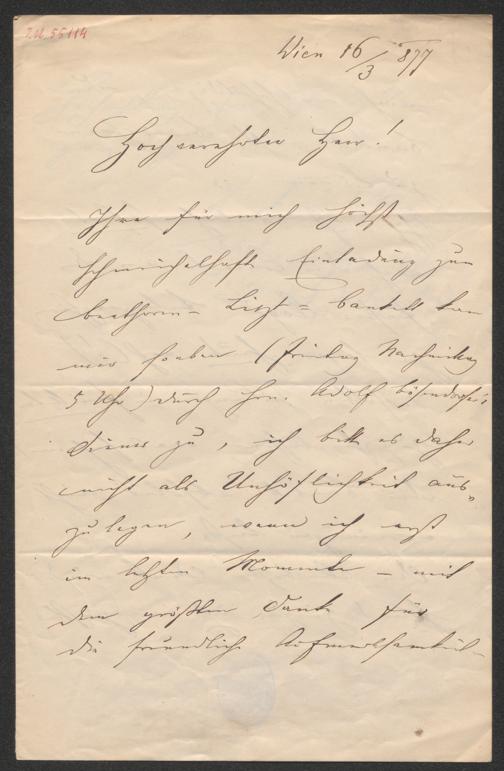 I.N. 55114
Wien 16/3 877
Hochverehrter Herr!
Ihre für mich höchst
schmeichelhafte Einladung zum
Beethoven- Liszt= Bankett kam
mir soeben (Freitag Nachmittag
5 Uhr) durch Hrn. Adolf Bösendorfer's
Diener zu, ich bitte es daher
nicht als Unhöflichkeit aus„
zulegen, wenn ich erst
im letzten Momente – mit
dem größten Danke für
die freundliche Aufmerksamkeit –